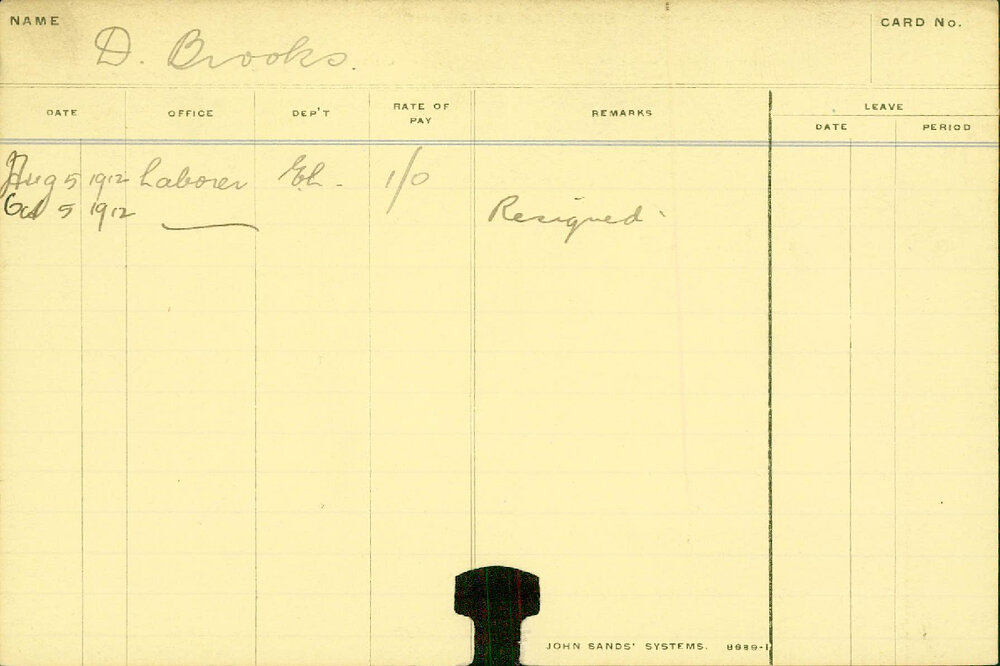 NAME D. Brooks. CARD No.
DATE OFFICE DEP'T RATE OF PAY REMARKS LEAVE
DATE PERIOD
Aug 5 1912 Laborer 1/0
Oct 5 1912 Resigned
JOHN SANDS' SYSTEMS. 8989-1